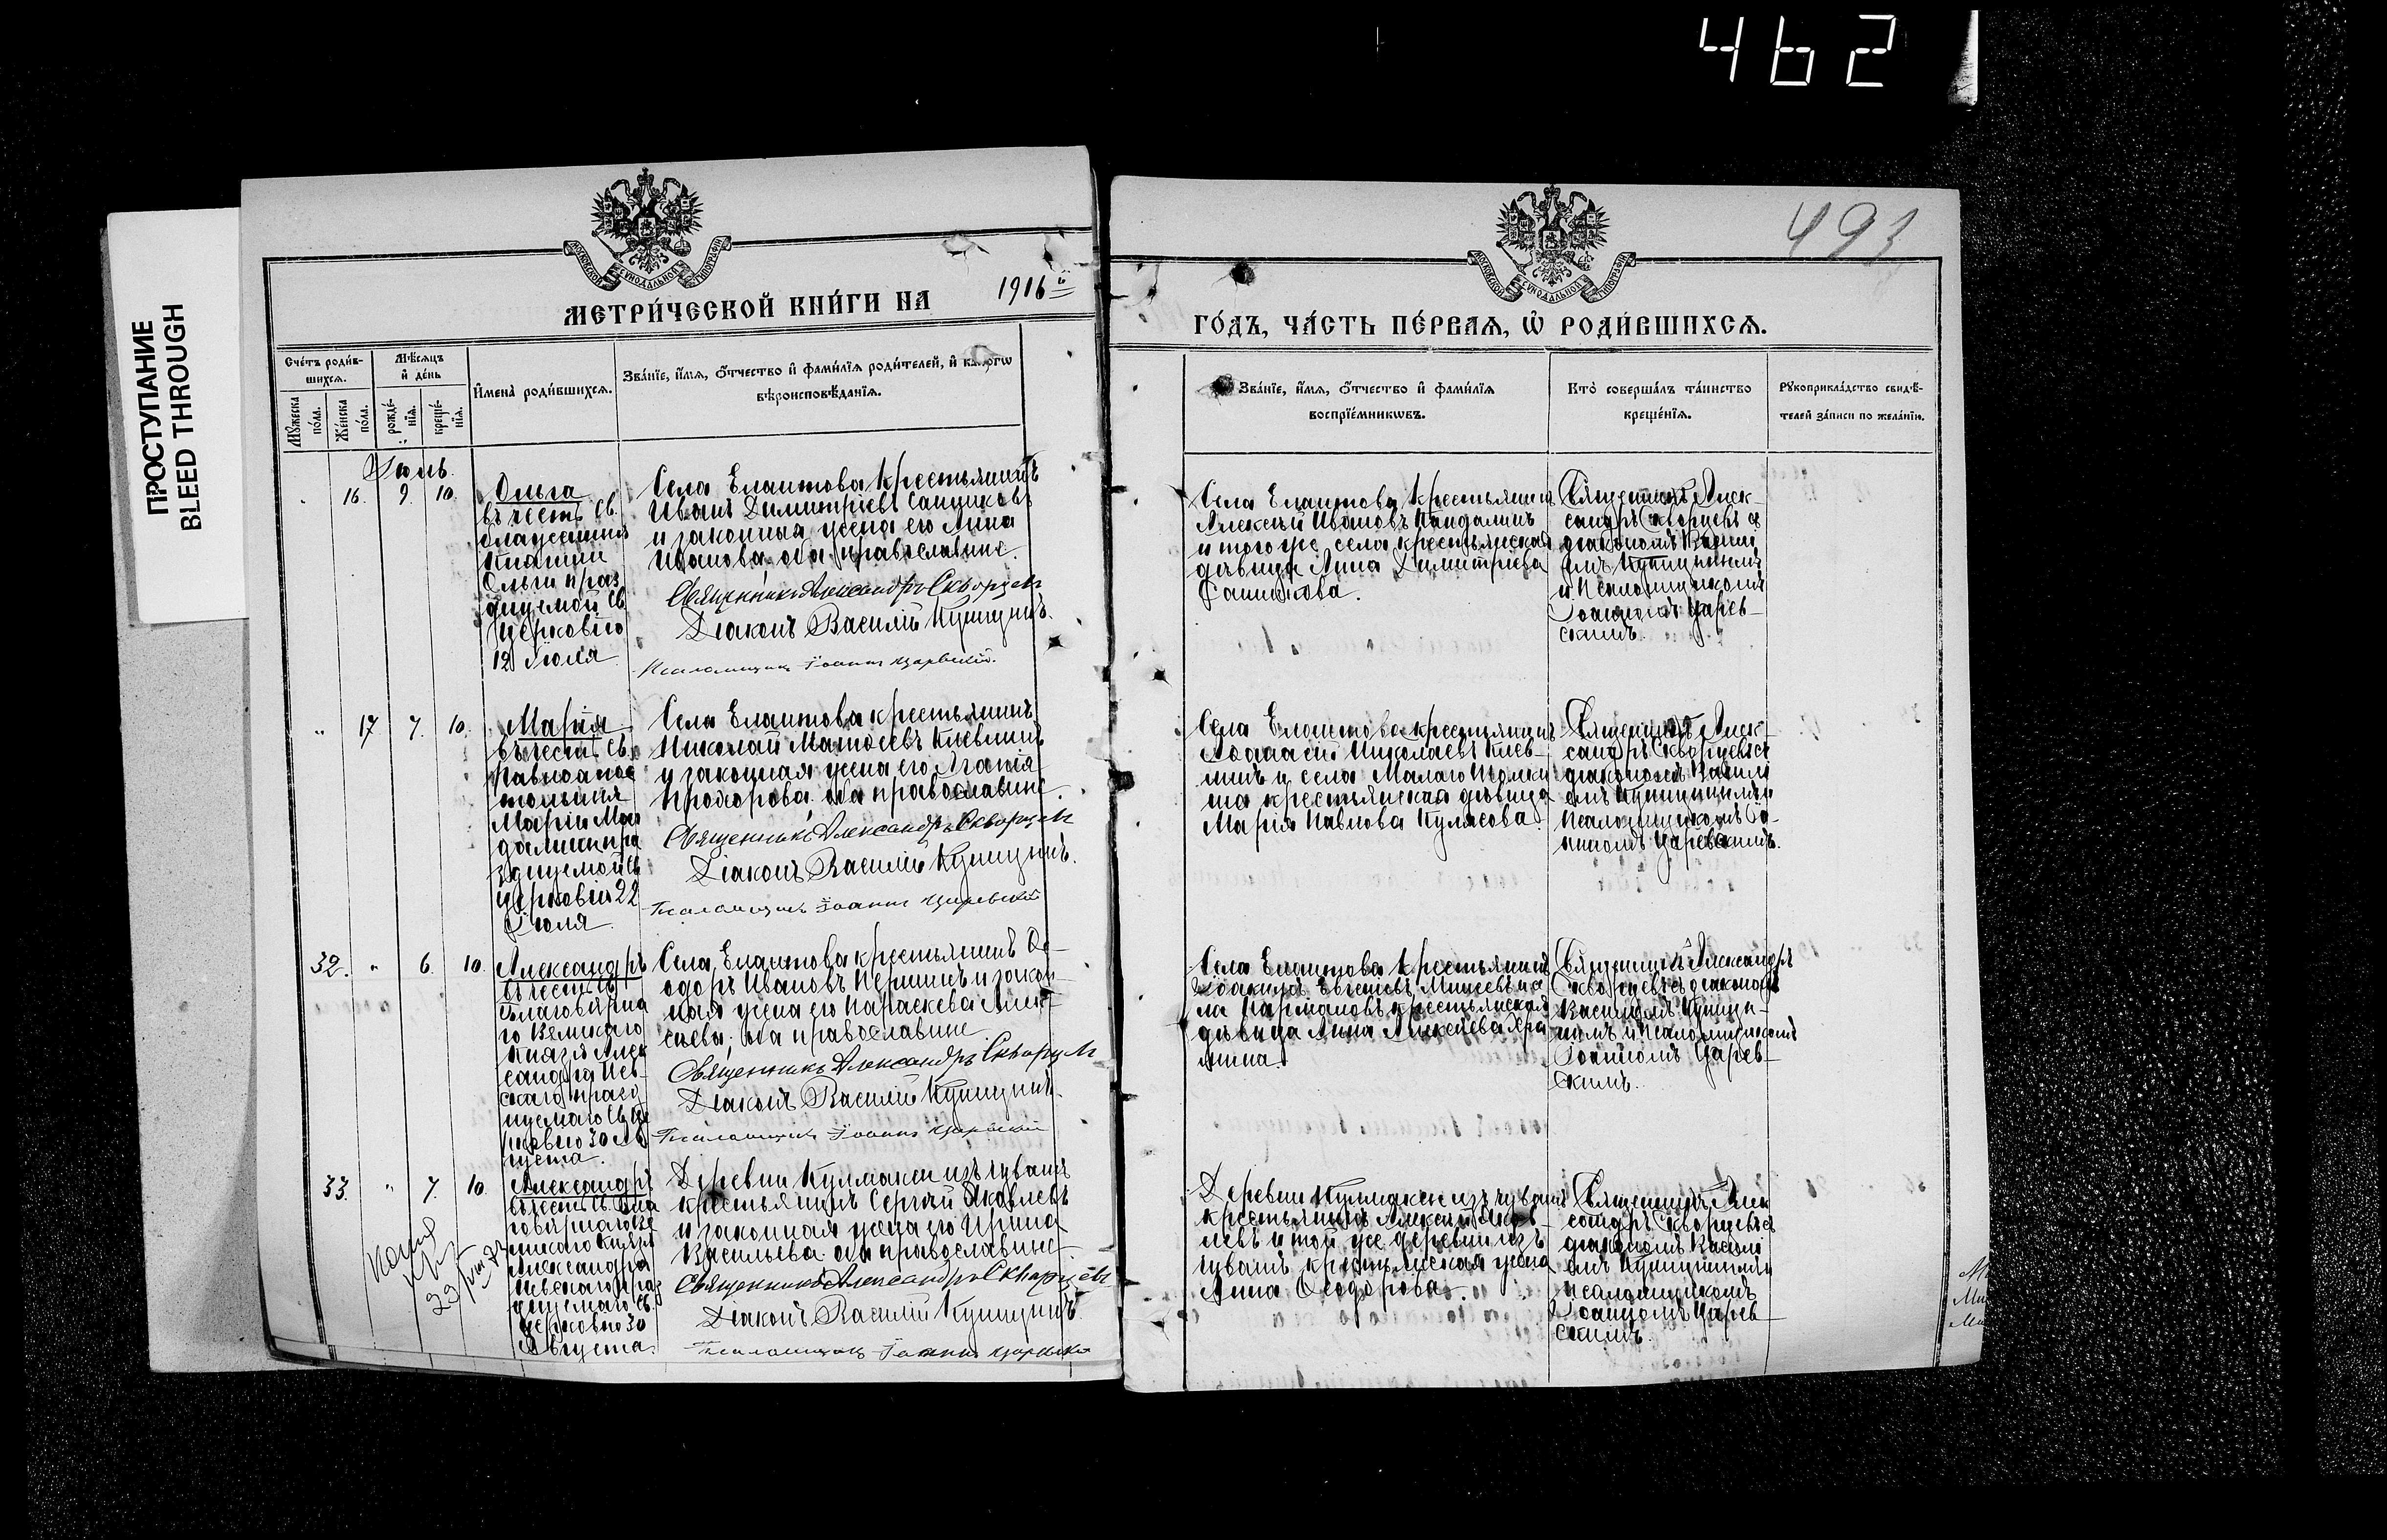 462
ПРОСТУПАНИЕ
BLEED THROUGH
493
МЕТРИ́ЧЕСКОЙ КНИ́ГИ НА 1916й
ГО́ДЪ, ЧА́СТЬ ПЕ́РВАЯ, Ѡ҆ РОДИ́ВШИХСЯ.
Сче́тъ роди́в-
шихся.
Мѣ́сяцъ
и҆ де́нь
Мꙋ́жеска
по́ла.
Же́нска
по́ла.
рожде́-
нїя.
креще́-
нїя.
И҆мена̀ роди́вшихся.
Зва́нїе, и҆́мя, ѻ҆́тчество и҆ фами́лїя роди́телей, и҆
вѣроисповѣ́данїя.
Зва́нїе, и҆́мя, ѻ҆́тчество и҆ фами́лїя
воспрїе́мникѡвъ.
Кто̀ соверша́лъ та́инство
креще́нїя.
Рꙋкоприкла́дство свидѣ́-
телей за́писи по жела́нїю.
Іюль
16. 9. 10.
Ольга
въ честь Св.
Княгини
Ольги праз
днуемой Св
Церковію
12 Іюля
Села Елаштова крестьянинъ
Иванъ Димитріевъ
и законная жена его Анна
Иванова, оба православные.
Священникъ Александръ Скворцевъ
Діаконъ Василій Купцинъ.
Псаломщикъ Іоаннъ Царевскій.
Села Елаштова крестьянинъ
Алексѣй Ивановъ
и того же села крестьянская
дѣвица Анна Димитріева
Священникъ Алек-
сандръ Скворцевъ съ
діакономъ Васил
и Псаломщикомъ
Іоанномъ Царев-
скимъ.
17 7. 10.
Марія
въ честь Св.
Равноапос
тольныя
Маріи Маг
далины пра
зднуемой Св
Церковію 22
Іюля
Села Елаштова крестьянинъ
Николай Матѳеевъ
и законная жена его Агапія
Прохорова, оба православные.
Священникъ Александръ Скворцевъ
Діаконъ Василій Купцинъ.
Псаломщикъ Іоаннъ Царевскій
Села Елаштова крестьянинъ
Николаевъ
и села Малаго
на крестьянская дѣвица
Марія Павлова Кулясова.
Священникъ Алек-
сандръ Скворцевъ съ
діакономъ Васил
псаломщикомъ Іо-
анномъ Царевскимъ.
32. " 6. 10.
Александръ
въ честь Св
благовѣрна
го Великаго
Князя Алек
сандра Нев-
скаго празд
нуемаго Св Це
рковію 30 Ав
густа.
Села Елаштова крестьянинъ Ѳе-
одоръ Ивановъ и закон-
ная жена его Параскева Алек-
сѣева, оба православные
Священникъ Александръ Скворцевъ
Діаконъ Василій Купцинъ.
Псаломщикъ Іоаннъ Царевскій
Села Елаштова крестьянинъ
крестьянская
дѣвица Анна Алексѣева
Священникъ Александръ
Скворцевъ съ діакономъ
и псаломщикомъ
Іоанномъ Царев-
скимъ.
33. " 7. 10.
Александръ
въ честь Св. бла
говѣрнаго Ве
ликаго Князя
Александра
Невскаго праз
днуемаго Св.
Церковію 30
Августа.
Деревни Кулмакси изъ чувашъ
крестьянинъ Сергѣй Яковлевъ
и законная жена его Ирина
Васильева, оба православные.
Священникъ Александръ Скворцевъ
Діаконъ Василій Купцинъ.
Псаломщикъ Іоаннъ Царевскій
Деревни Кулмакси изъ чувашъ
крестьянинъ Алексѣй Яков-
левъ и той же деревни изъ
чувашъ крестьянская жена
Анна Ѳеодорова.
Священникъ Алек
сандръ Скворцевъ съ
діакономъ Васил
псаломщикомъ
Іоанномъ Царев-
скимъ.